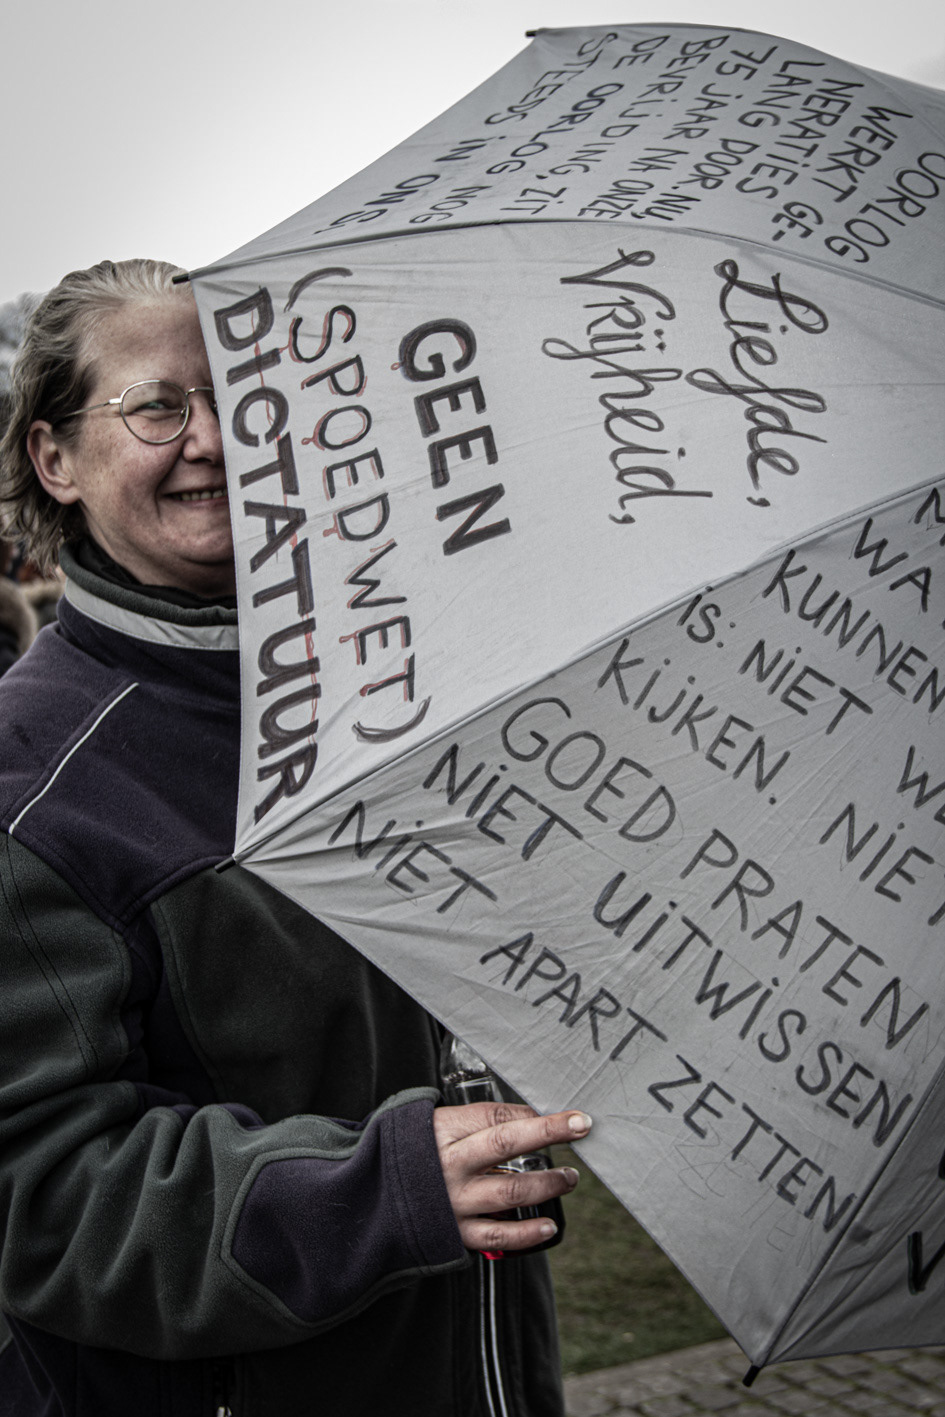 OORLOG
WERKT GE-
NERATIES
LANG DOOR. NU,
75 JAAR NA ONZE
BEVRIJDING, ZIT
DE OORLOG NOG
STEEDS IN ONS!
Liefde,
Vrijheid,
GEEN
(SPOEDWET)
DICTATUUR
KUNNEN
iS: NiET
KiJKEN. NiET
GOED PRATEN
NiET UiTWiSSEN
NiET APART ZETTEN